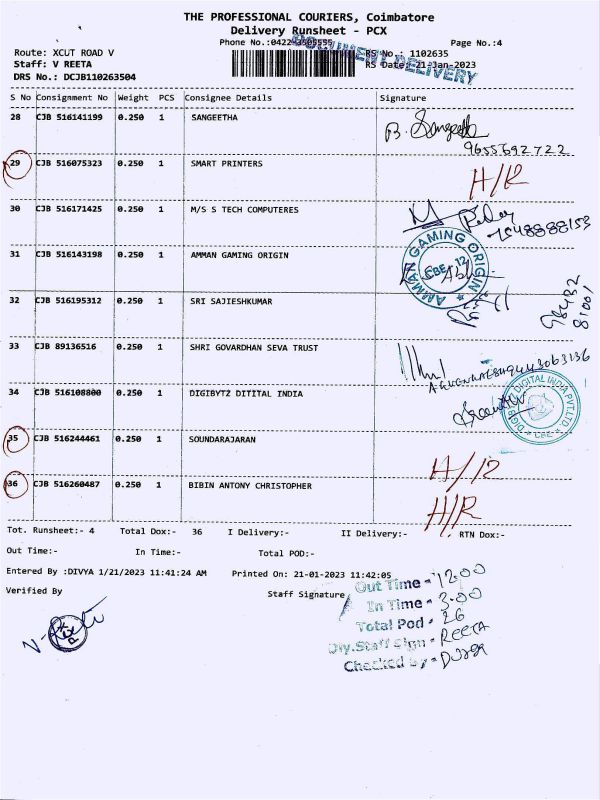 THE PROFESSIONAL COURIERS, Coimbatore
Delivery Runsheet - PCX
Phone No.:0422-3505555 Page No.:4
DOCUMENT DELIVERY
Route: XCUT ROAD V RS No.: 1102635
Staff: V REETA RS Date: 21-Jan-2023
DRS No.: DCJB110263504
S No Consignment No Weight PCS Consignee Details Signature
28 CJB 516141199 0.250 1 SANGEETHA B. Sangeetha
9655692722
29 CJB 516075323 0.250 1 SMART PRINTERS H/R
30 CJB 516171425 0.250 1 M/S S TECH COMPUTERES
7548888153
31 CJB 516143198 0.250 1 AMMAN GAMING ORIGIN
AMMAN GAMING ORIGIN
CBE - 12
32 CJB 516195312 0.250 1 SRI SAJIESHKUMAR
98432
81001
33 CJB 89136516 0.250 1 SHRI GOVARDHAN SEVA TRUST
9443063136
34 CJB 516108800 0.250 1 DIGIBYTZ DITITAL INDIA
DIGIBYTZ DIGITAL INDIA PVT.LTD.
CBE
35 CJB 516244461 0.250 1 SOUNDARAJARAN H/R
36 CJB 516260487 0.250 1 BIBIN ANTONY CHRISTOPHER H/R
Tot. Runsheet:- 4 Total Dox:- 36 I Delivery:- II Delivery:- RTN Dox:-
Out Time:- In Time:- Total POD:-
Entered By :DIVYA 1/21/2023 11:41:24 AM Printed On: 21-01-2023 11:42:05
Verified By Staff Signature
Out Time - 12.00
In Time - 3.00
Total Pod - 26
Dly.Staff Sign - REETA
Checked by - Durga